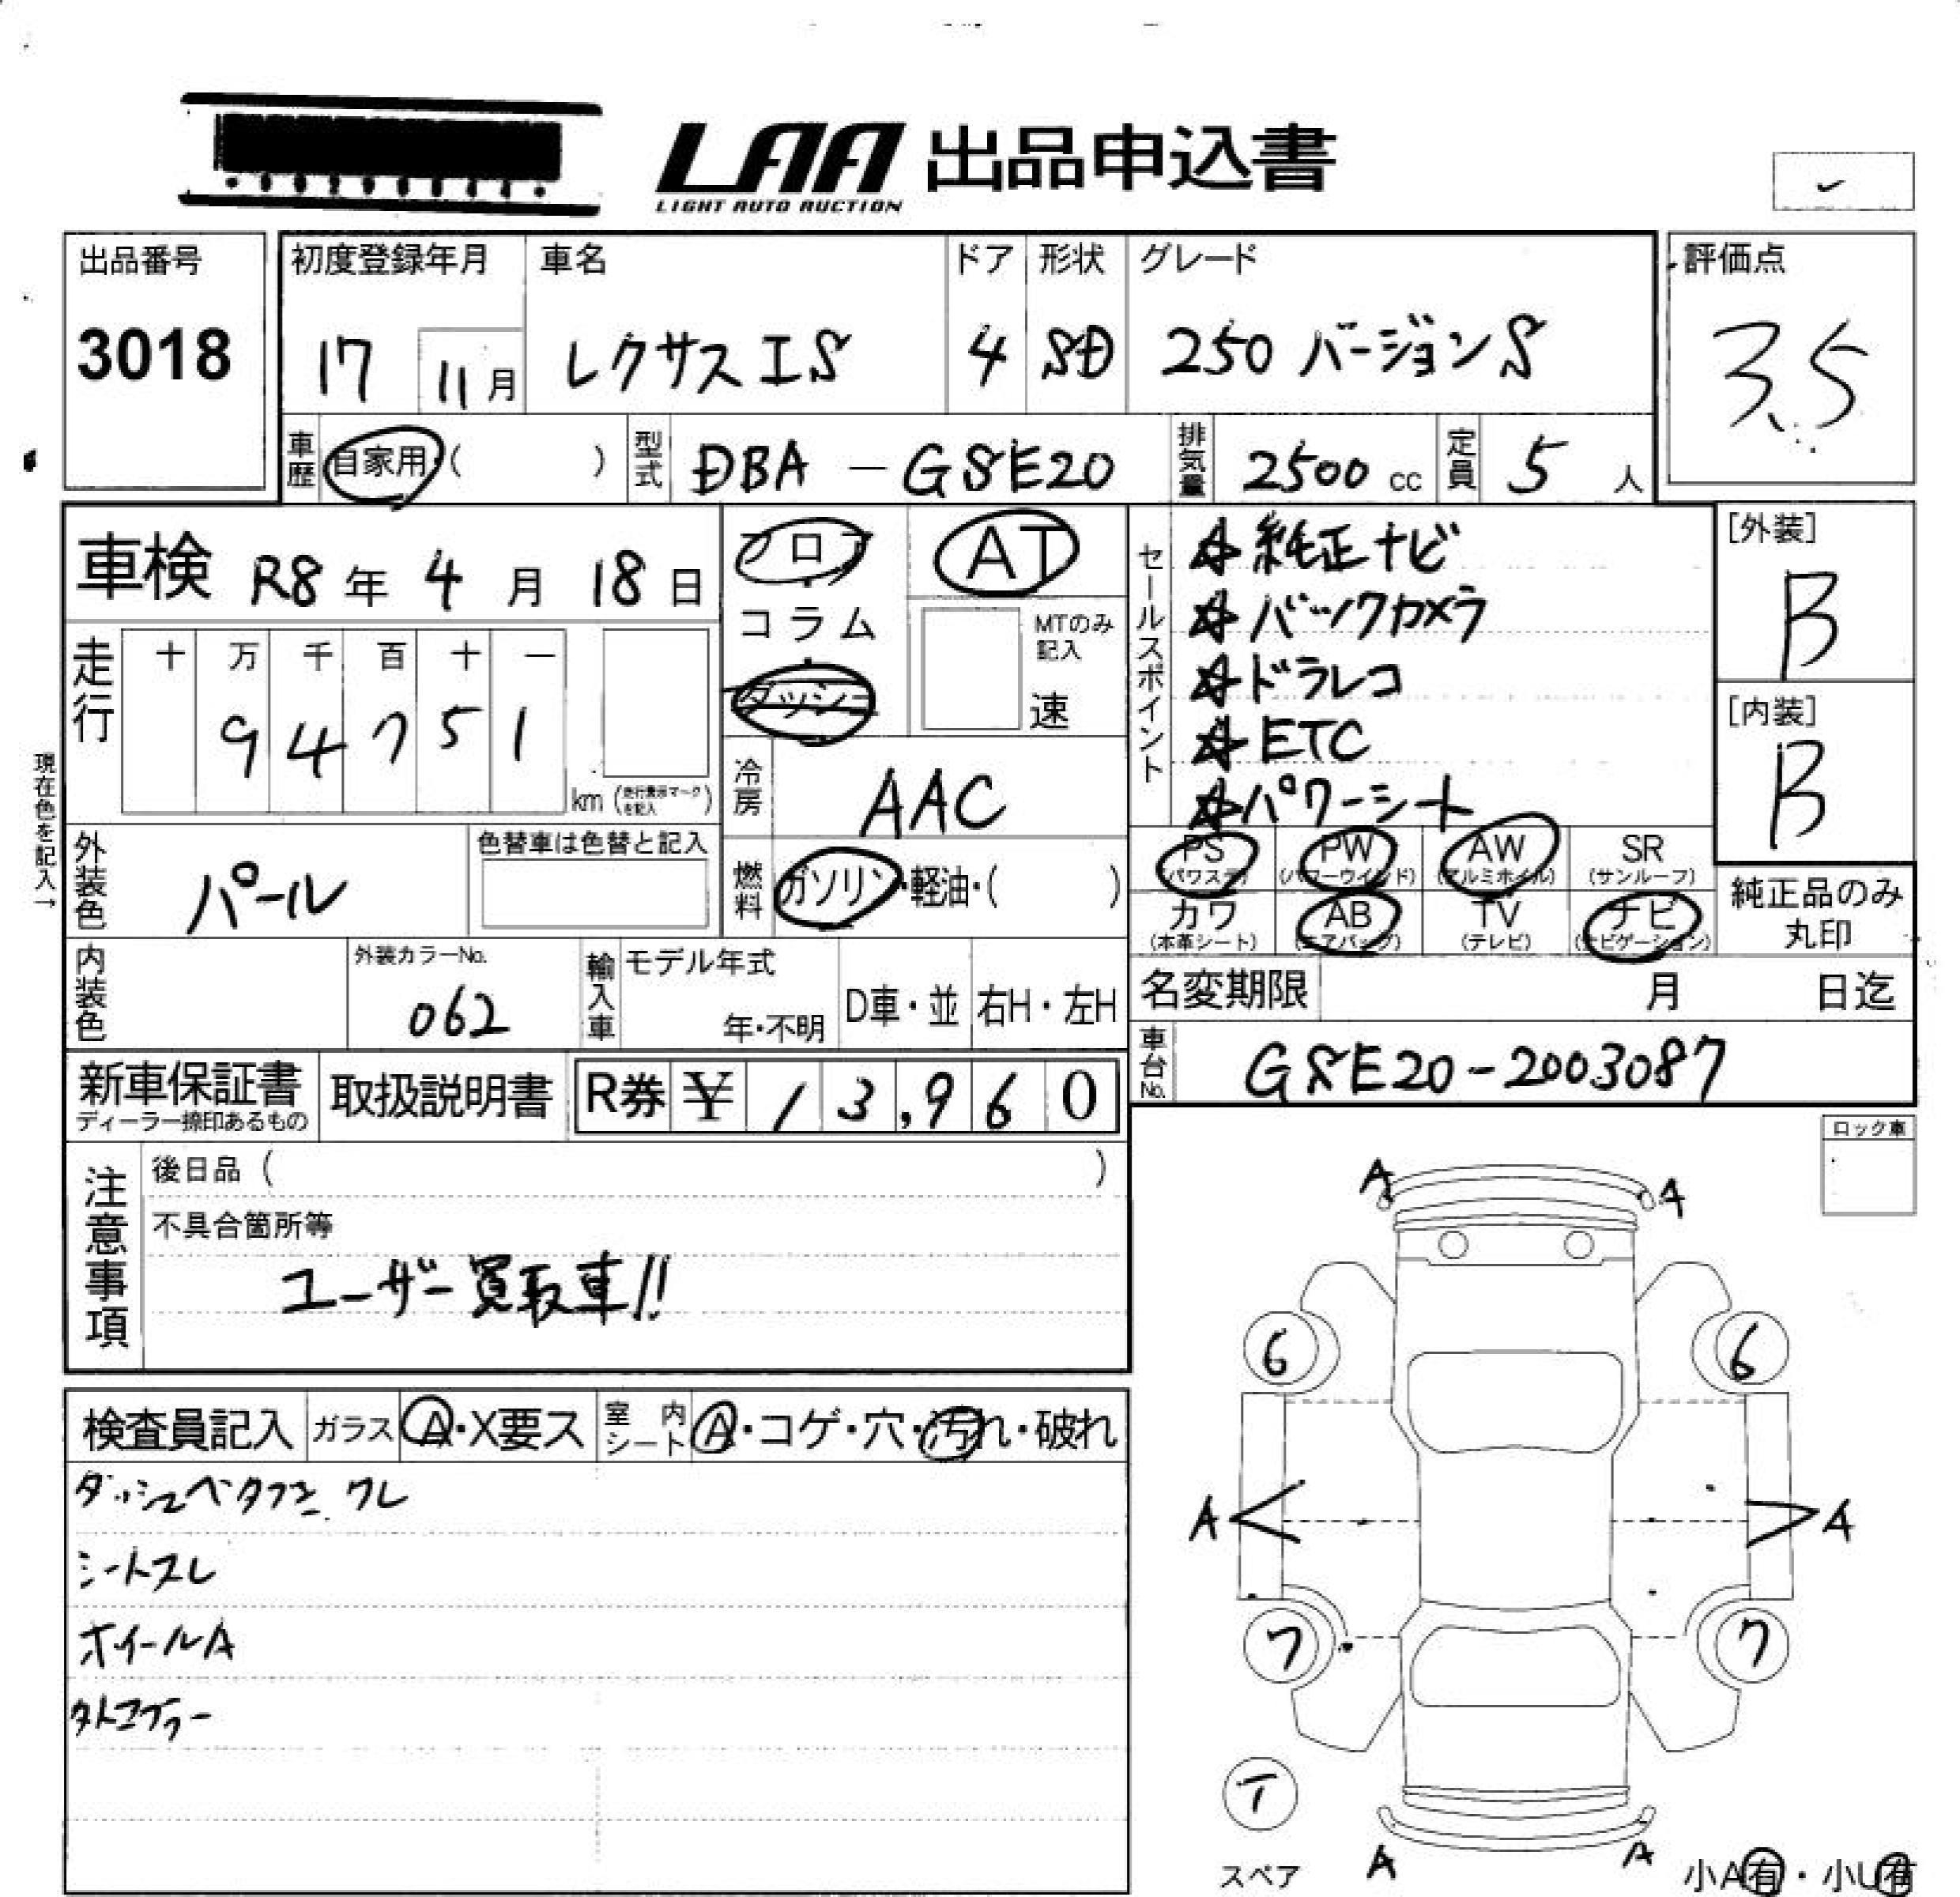 LAA 出品申込書
LIGHT AUTO AUCTION
出品番号
3018
初度登録年月
17 11月
車名
レクサスIS
ドア
4
形状
SD
グレード
250 バージョンS
評価点
3.5
車歴 自家用 ( )
型式 DBA - GSE20
排気量 2500 cc
定員 5 人
車検 R8年 4月 18日
フロア
コラム
ダッシュ
AT
MTのみ記入
速
セールスポイント
☆純正ナビ
☆バックカメラ
☆ドラレコ
☆ETC
☆パワーシート
[外装]
B
[内装]
B
走行
十 万 千 百 十 一
9 4 7 5 1
km (走行表示マークを記入)
冷房 AAC
現在色を記入→
外装色 パール
色替車は色替と記入
燃料 ガソリン・軽油・( )
PS (パワステ)
PW (パワーウインド)
AW (アルミホイル)
SR (サンルーフ)
カワ (本革シート)
AB (エアバッグ)
TV (テレビ)
ナビ (ナビゲーション)
純正品のみ
丸印
内装色
外装カラーNo.
062
輸入車
モデル年式
年・不明
D車・並
右H・左H
名変期限 月 日迄
車台No. GSE20-2003087
新車保証書
ディーラー捺印あるもの
取扱説明書
R券 ¥ 13,960
注意事項
後日品 ( )
不具合箇所等
ユーザー買取車!!
ロック車
検査員記入
ガラス A・X要ス
室内シート A・コゲ・穴・汚れ・破れ
シートスレ
ホイールA
A A
6 6
A A
7 7
T
スペア
A A
小A有・小U有